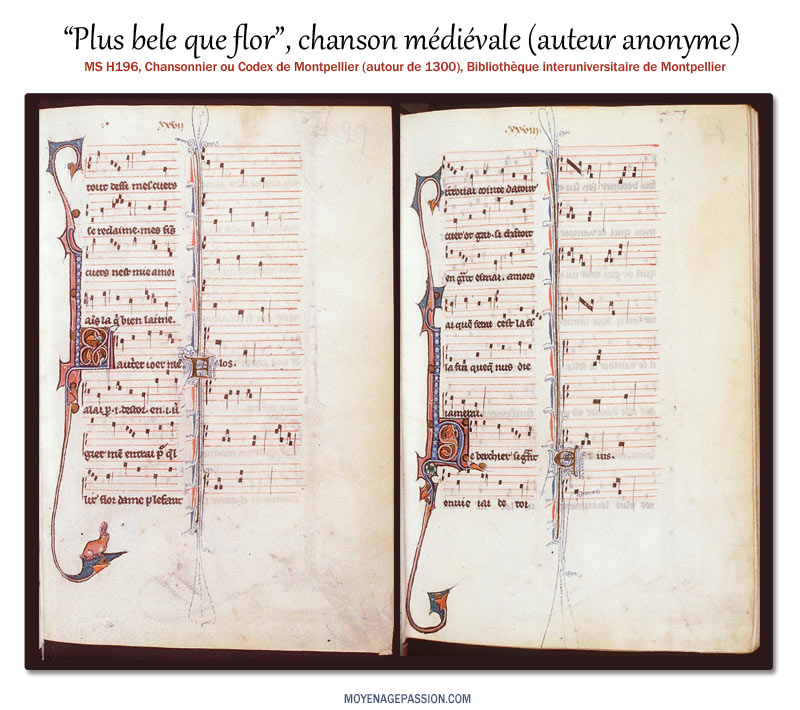 “Plus bele que flor”, chanson médiévale (auteur anonyme)
MS H196, Chansonnier ou Codex de Montpellier (autour de 1300), Bibliothèque interuniversitaire de Montpellier
xxvii
tout deffi mes cuers
se reclaime. mes fins
cuers nest mie a moi
ains la q bien laime.
autrer ioer me
alai p .i. destor. en .i. u
gier men entrai p q l
lir flor dame plesant
los.
xxviii
cointe datour
cuer or
en esmai. amors
ai que ferai cest la fi
la fin queq nus die
iamerai.
e berchier si grant
envie iai de toi
ius.
MOYENAGEPASSION.COM